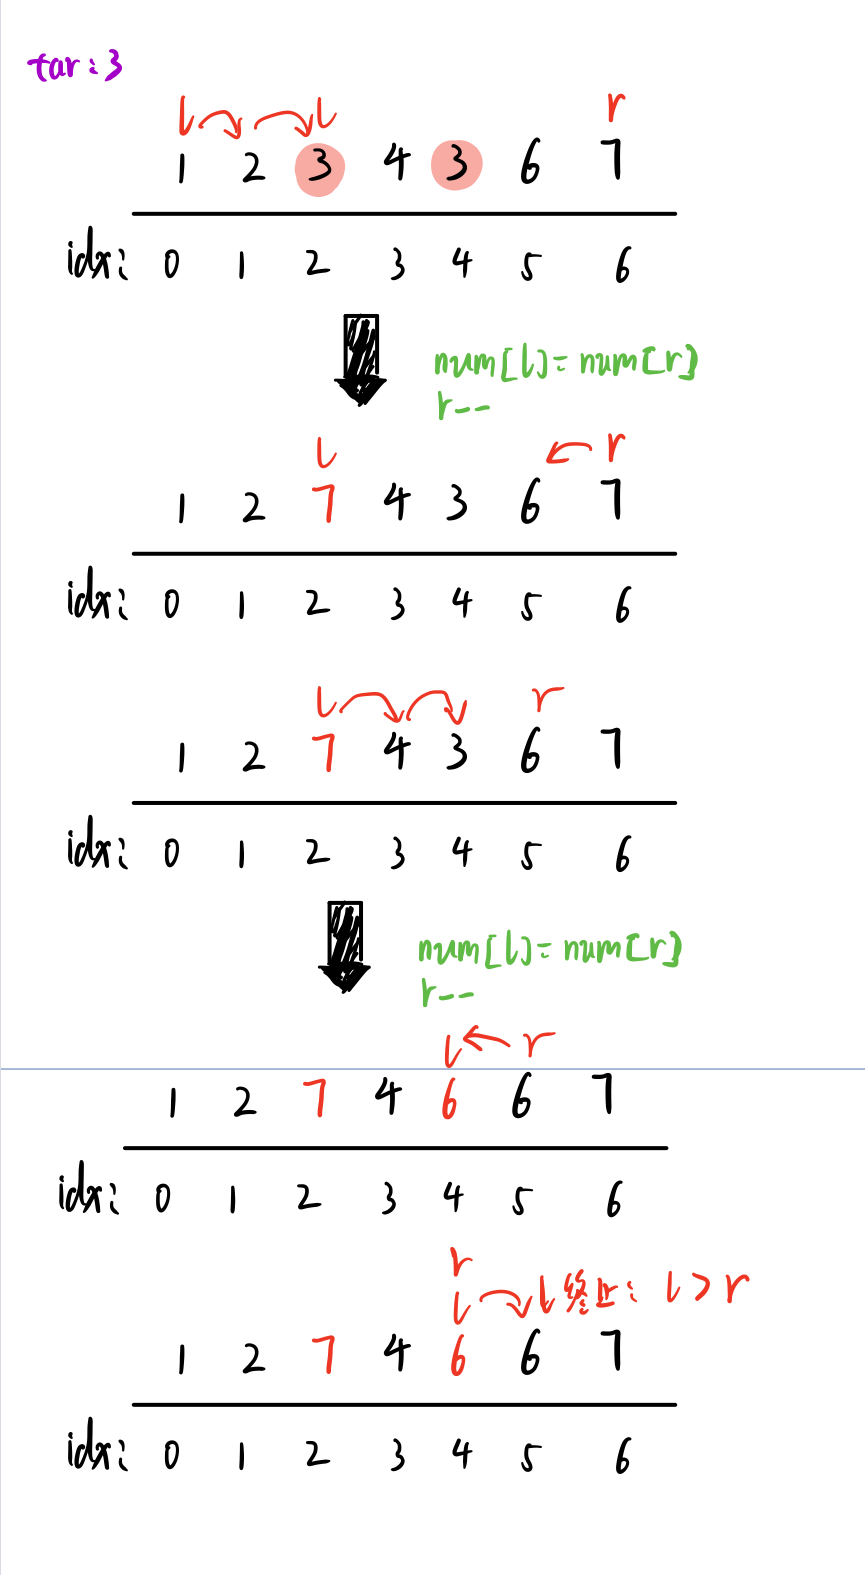 tar:3
l l r
1 2 3 4 3 6 7
idx: 0 1 2 3 4 5 6
num[l]=num[r]
r--
l r
1 2 7 4 3 6 7
idx: 0 1 2 3 4 5 6
l r
1 2 7 4 3 6 7
idx: 0 1 2 3 4 5 6
num[l]=num[r]
r--
l r
1 2 7 4 6 6 7
idx: 0 1 2 3 4 5 6
r
l l 终止: l>r
1 2 7 4 6 6 7
idx: 0 1 2 3 4 5 6